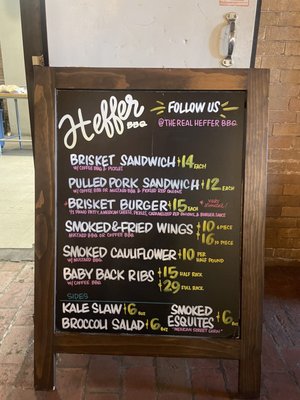 Heffer BBQ.
FOLLOW US
@THE REAL HEFFER BBQ
BRISKET SANDWICH $14 EACH
W/ COFFEE BBQ & PICKLES
PULLED PORK SANDWICH $12 EACH
W/ COFFEE BBQ OR MUSTARD BBQ & PICKLED RED ONIONS
BRISKET BURGER $15 EACH
PATTY, AMERICAN CHEESE, PICKLES, CARAMELIZED RED ONIONS, & BURGER SAUCE
SMOKED & FRIED WINGS $10 6 PIECE
MUSTARD BBQ OR COFFEE BBQ $16 10 PIECE
SMOKED CAULIFLOWER $10 PER HALF POUND
W/ MUSTARD BBQ
BABY BACK RIBS $15 HALF RACK
W/ COFFEE BBQ $29 FULL RACK
SIDES
KALE SLAW $6 8oz
BROCCOLI SALAD $6 8oz
SMOKED
ESQUITES $6 8oz
"MEXICAN STREET CORN"